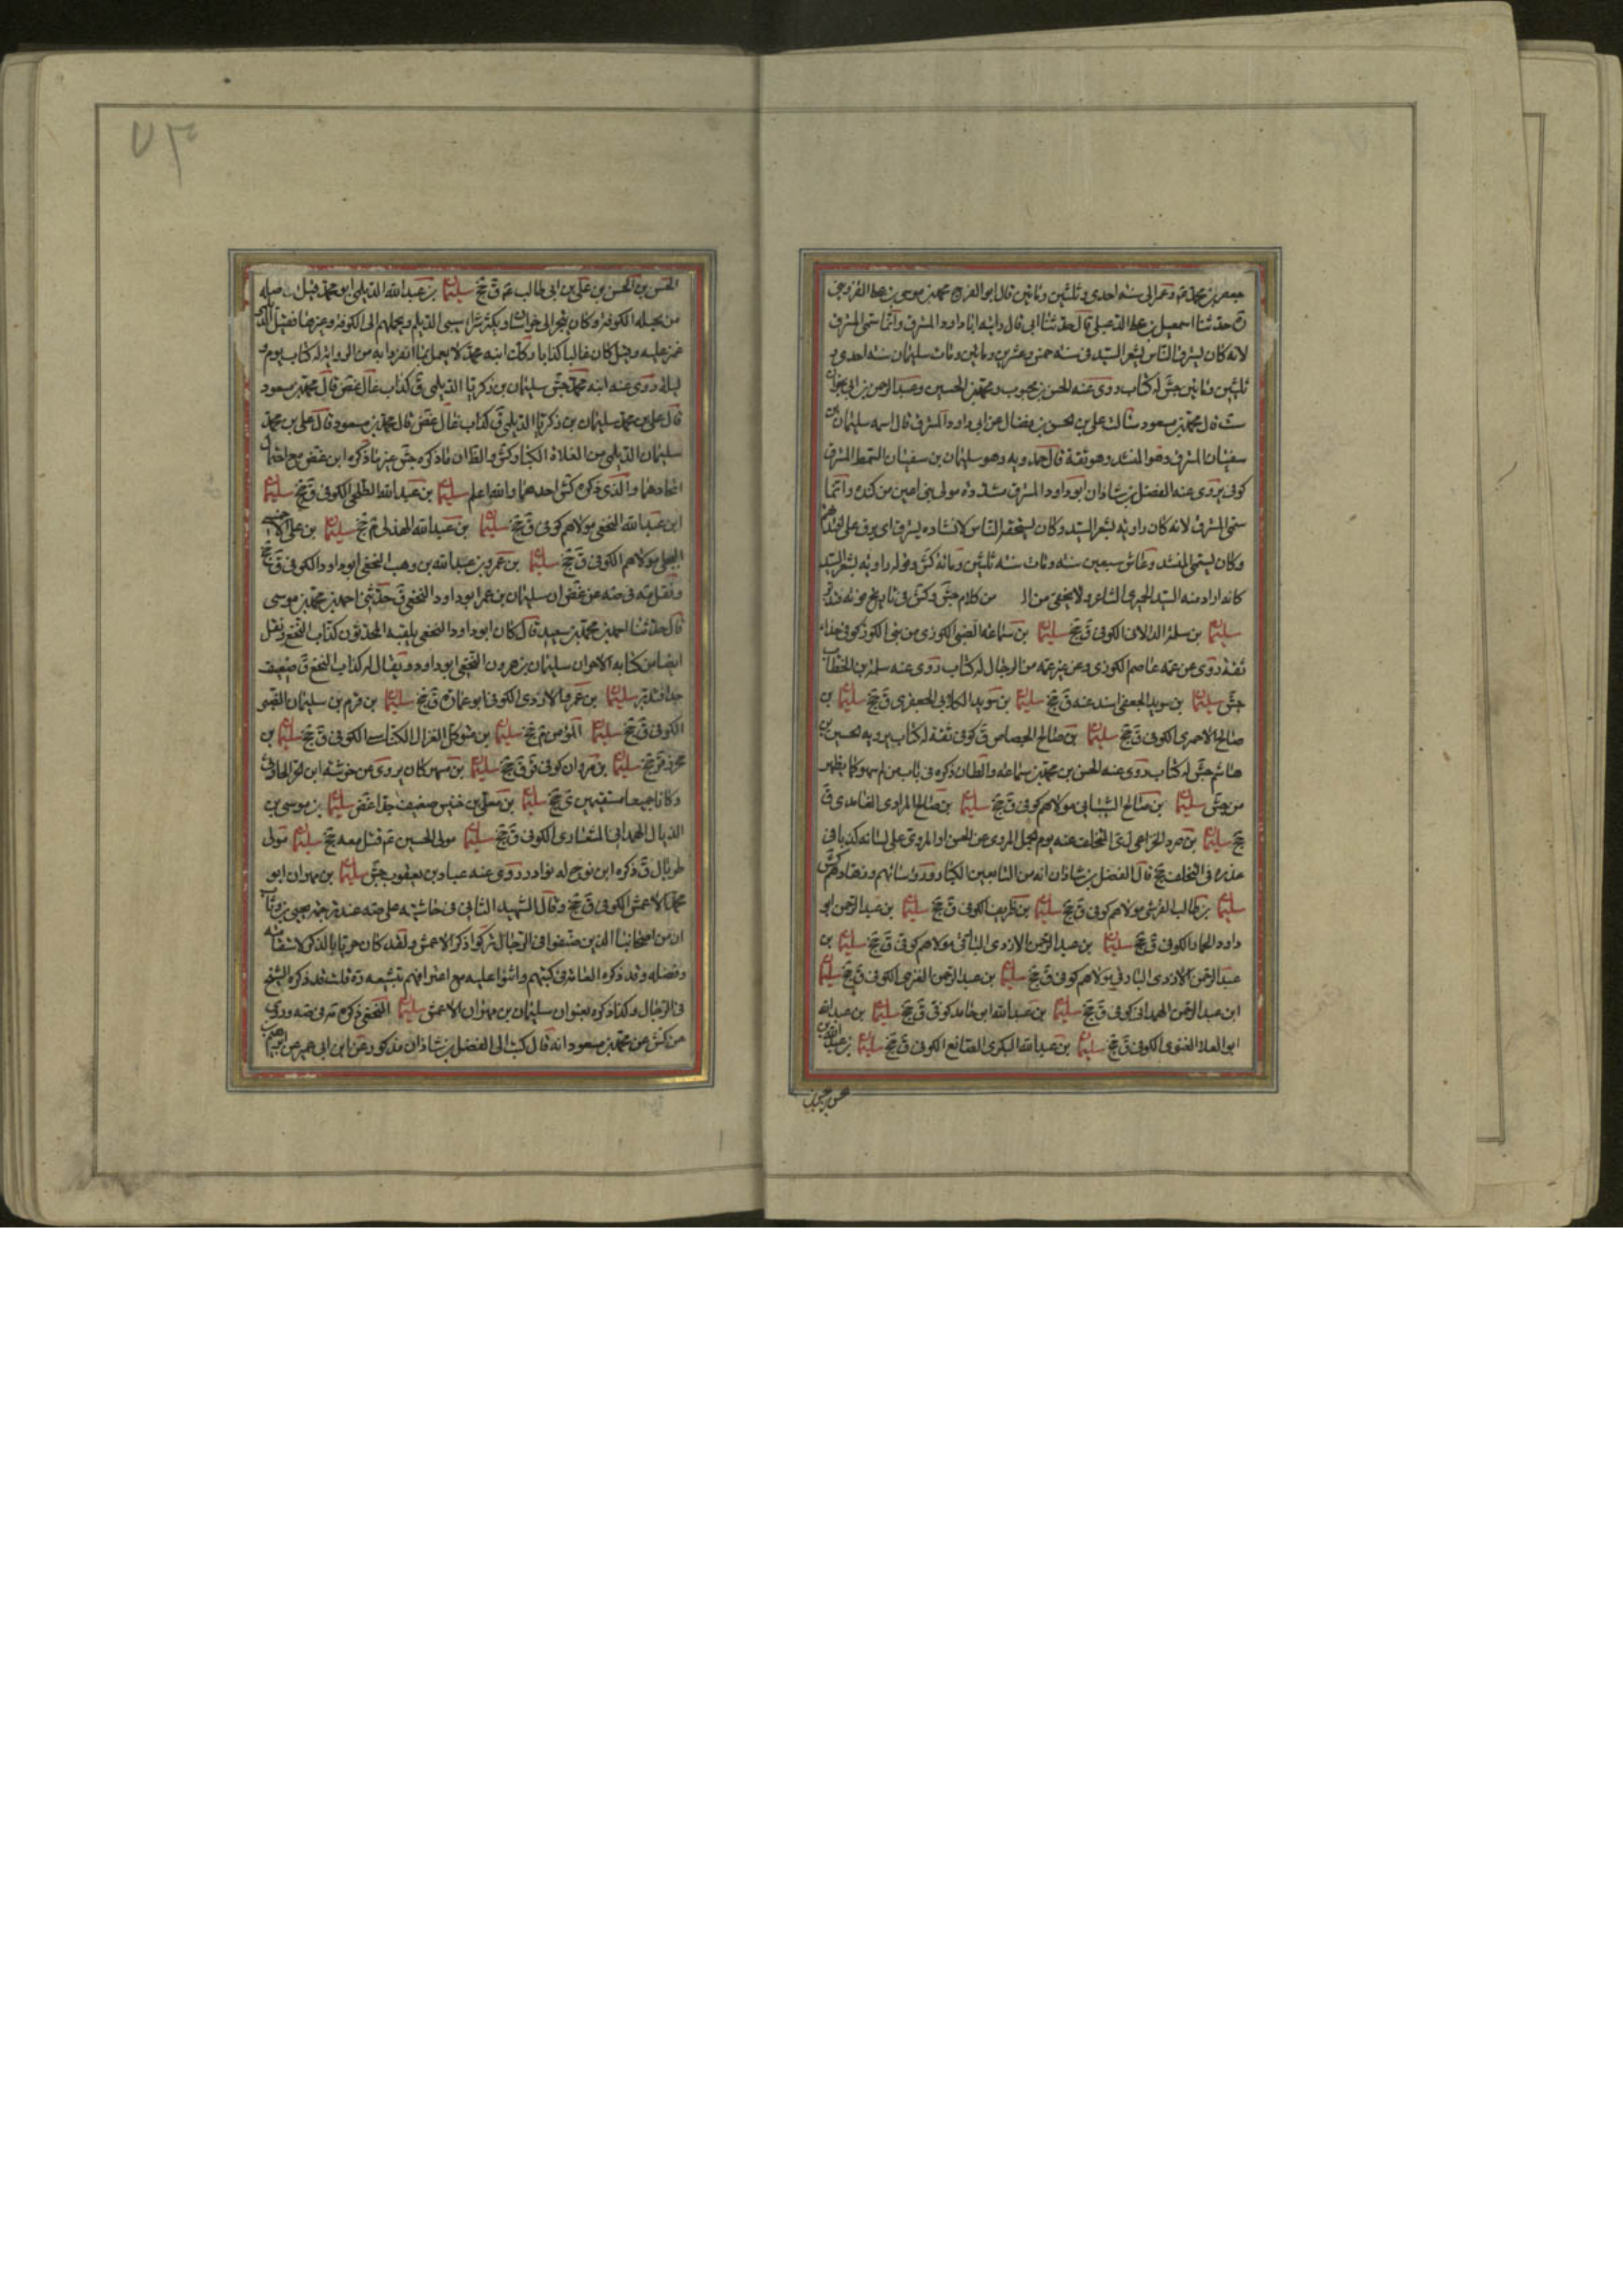 جعفر بن محمد ع وعمر الى سنة احدى وثلثين ومأتين قال ابو الفرج محمد بن موسى بن القزوينى
حدثنا اسمعيل بن على الدعبلى قال حدثنا ابى قال رايت ابا داود المسترق وانما سمى المسترق
لانه كان يسترق الناس بشعر السيد فى سنة خمس وعشرين ومأتين ومات سليمان سنة احدى و
ثلثين ومأتين جش له كتاب روى عنه الحسن بن محبوب ومحمد بن الحسين وعبد الرحمن بن ابى نجران
قال محمد بن مسعود سألت على بن الحسن بن فضال عن ابى داود المسترق قال اسمه سليمان بن
سفيان المسترق وهو المنشد وهو ثقة قال حمدويه وهو سليمان بن سفيان السمط المسترق
كوفى يروى عنه الفضل بن شاذان ابو داود المسترق مشددة مولى بنى اعين من كندة وانما
سمى المسترق لانه كان راوية لشعر السيد وكان يستخفه الناس لانشاده يسترق اى يرق على افئدتهم
وكان يسمى المنشد وعاش سبعين سنة ومات سنة ثلثين ومائة كش وقوله راوية لشعر السيد
كانه اراد منه السيد الحميرى الشاعر ولا يخفى من كلام جش وكش فى تاريخ موته فتدبر
سليمان بن سلمة الدالانى الكوفى ق جخ سليمان بن سماعة الضبى الكوزى من بنى الكوز كوفى حذاء
ثقة روى عن عمه عاصم الكوزى وعن غير عمه من الرجال له كتاب روى عنه سلمة بن الخطاب
جش سليمان بن سويد الجعفى اسند عنه ق جخ سليمان بن سويد الكلابى الجعفرى ق جخ سليمان بن
صالح الاحمرى الكوفى ق جخ سليمان بن صالح الجصاص ق كوفى ثقة له كتاب يرويه الحسين بن
هاشم جش له كتاب روى عنه الحسن بن محمد بن سماعة والظان ذكره فى باب من لم سهو كما يظهر
من جش سليمان بن صالح الشيبانى مولاهم كوفى ق جخ سليمان بن صالح المرادى الغامدى ق
جخ سليمان بن صرد الخزاعى ل ى المتخلف عنه يوم الجمل المروى عن الحسن او المروى على لسانه كذبا فى
عذره فى التخلف جخ قال الفضل بن شاذان انه من التابعين الكبار ورؤسائهم وزهادهم كش
سليمان بن طالب القرشى مولاهم كوفى ق جخ سليمان بن ظريف الكوفى ق جخ سليمان بن عبد الرحمن ابو
داود الحمار الكوفى ق جخ سليمان بن عبد الرحمن الازدى مولاهم كوفى ق جخ سليمان بن
عبد الرحمن الازدى البارقى مولاهم كوفى ق جخ سليمان بن عبد الرحمن الكوفى ق جخ سليمان
ابن عبد الرحمن الهمدانى كوفى ق جخ سليمان بن عبد الله ابو حامد كوفى ق جخ سليمان بن عبد الله
ابو العلا الغنوى الكوفى ق جخ سليمان بن عبد الله البكرى الصائغ الكوفى ق جخ سليمان بن عبد الله بن
٧٣
الحسن بن الحسن بن على بن ابى طالب ع م ق جخ سليمان بن عبد الله الديلمى ابو محمد قيل ان اصله
من بجيلة الكوفة وكان يتجر الى خراسان ويكثر شراء سبى الديلم ويحملهم الى الكوفة وغيرها فقيل الديلمى
غمز عليه وقيل كان غاليا كذابا وكذلك ابنه محمد لا يعمل بما انفردا به من الرواية له كتاب يوم و
ليلة روى عنه ابنه محمد جش سليمان بن زكريا الديلمى ق كذاب غال غض قال محمد بن مسعود
قال على بن محمد سليمان بن زكريا الديلمى ق كذاب غال غض قال محمد بن مسعود قال على بن محمد
سليمان الديلمى من الغلاة الكبار كش والظ ان ما ذكره جش غير ما ذكره ابن غض مع احتمال
اتحادهما والذى ذكره كش احدهما والله اعلم سليمان بن عبد الله الطلحى الكوفى ق جخ سليمان
ابن عبد الله النخعى مولاهم كوفى ق جخ سليمان بن عبد الله الهذلى ق جخ سليمان بن على
البجلى مولاهم الكوفى ق جخ سليمان بن عمرو بن عبد الله بن وهب النخعى ابو داود الكوفى ق جخ
ونقل مه فى صه عن غض ان سليمان بن عمر ابو داود النخعى ق حدثنى احمد بن محمد بن موسى
قال حدثنا احمد بن محمد بن سعيد قال كان ابو داود النخعى يلقبه المحدثون كذاب النخع ونقل
ايضا من كتابه الاخر ان سليمان بن هرون النخعى ابو داود ويقال له كذاب النخع ق ضعيف
جدا فتدبر سليمان بن عمر الازدى الكوفى ابو عمارة ق جخ سليمان بن قرم بن سليمان الضبى
الكوفى ق جخ سليمان المؤمن ق جخ سليمان بن متوكل الغزال الكناسى الكوفى ق جخ سليمان بن
محرز قر جخ سليمان بن مروان كوفى ق ق جخ سليمان بن مسهر كان يروى عن خرشة ابن الحر الحارثى
وكانا جميعا مستقيمين ى جخ سليمان بن معلى بن خنيس ضعيف جدا غض سليمان بن موسى بن
الذيال الهمدانى المشعارى الكوفى ق جخ سليمان مولى الحسين ع قتل معه جخ سليمان مولى
طربال ق ذكره ابن نوح له نوادر روى عنه عباد بن يعقوب جش سليمان بن مهران ابو
محمد الاعمش الكوفى ق جخ وقال الشهيد الثانى فى حاشيته على صه عند ترجمة يحيى بن وثاب
ان من اصحابنا الذين صنفوا فى الرجال تركوا ذكر الاعمش ولقد كان حريا بالذكر لاستقامته
وفضله وقد ذكره العامة فى كتبهم واثنوا عليه مع اعترافهم بتشيعه ره قلت قد ذكره الشيخ
فى الرجال وكذا ذكره بعنوان سليمان بن مهران الاعمش سليمان النخعى ذكره مه فى صه وروى
من كش عن محمد بن مسعود انه قال كتب الى الفضل بن شاذان مذكور عن ابن ابى عمير عن ابراهيم بن